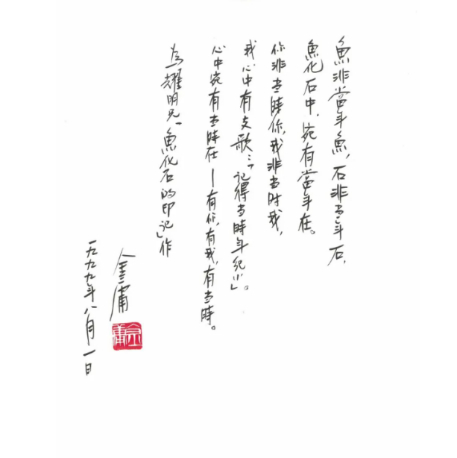 魚非當年魚，石非當年石，
魚化石中，宛有當年在。
你非当時你，我非当时我，
我心中有支歌：「记得当時年纪小」。
心中宛有当時在—有你，有我，有当時。
為耀明兄「魚化石的印记」作
金庸
一九九九年八月一日